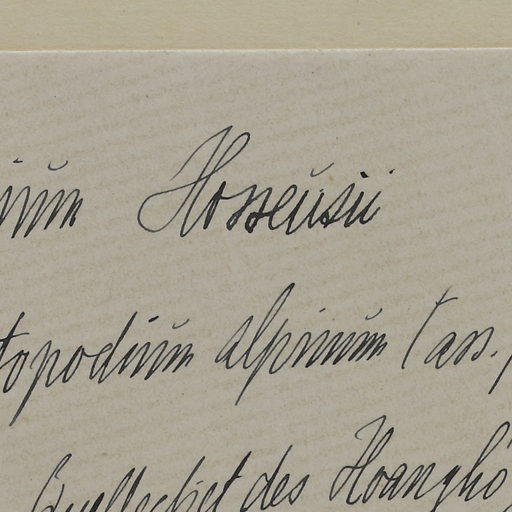 ium Hosseusii
topodium alpinum (Cass.
Quellgebiet des Hoangho